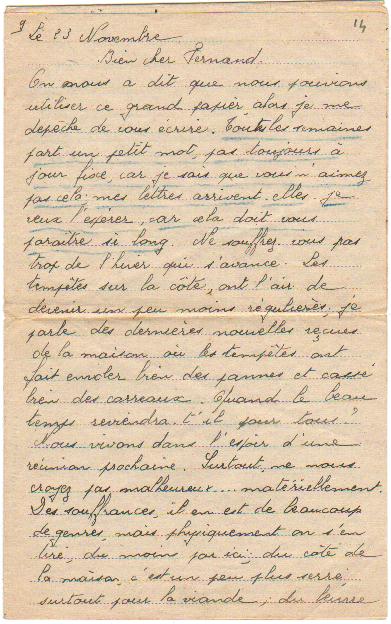 9 14
Le 23 Novembre.
Bien cher Fernand.
On nous a dit que nous pouvions
utiliser ce grand papier alors je me
depêche de vous écrire. Toutes les semaines
part un petit mot, pas toujours à
jour fixe, car je sais que vous n'aimez
pas cela; mes lettres arrivent-elles, je
veux l'espérer, car cela doit vous
paraître si long. Ne souffrez vous pas
trop de l'hiver qui s'avance. Les
tempêtes sur la côte, ont l'air de
devenir un peu moins régulières, je
parle des dernières nouvelles reçues
de la maison où les tempêtes ont
fait envoler bien des pannes et cassé
bien des carreaux. Quand le beau
temps reviendra-t'il pour tous?
Nous vivons dans l'espoir d'une
réunion prochaine. Surtout, ne nous
croyez pas malheureux... matériellement.
Des souffrances, il en est de beaucoup
de genres, mais physiquement on s'en
tire, du moins par ici; du côté de
la maison, c'est un peu plus serré
surtout pour la viande, du beurre